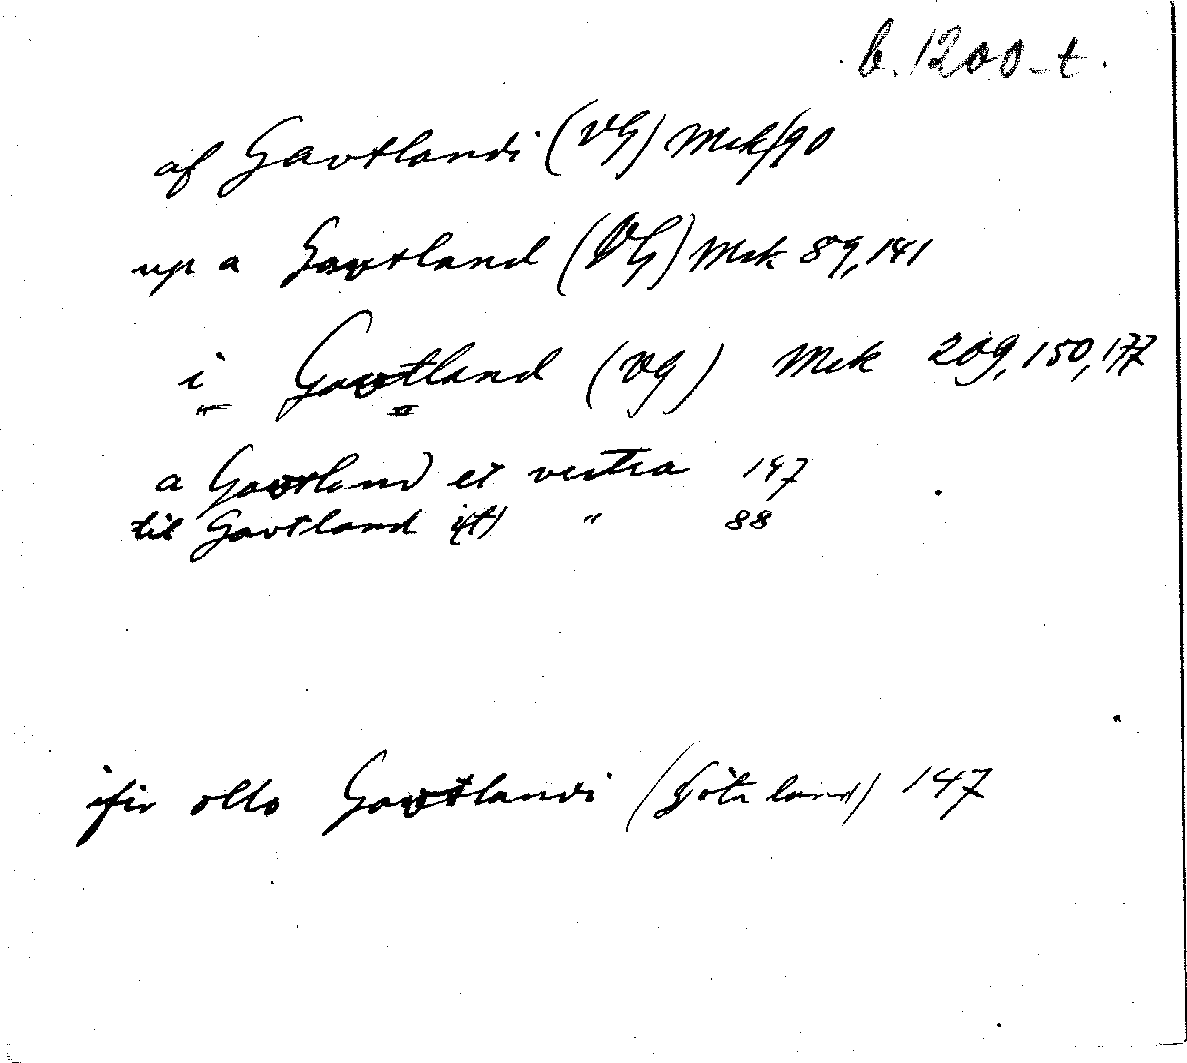 b. 1200-t.
af Gavtlandi (VG) Msk 190
up a Gavtland (VG) Msk 89, 141
i Gavtland (Vg) Msk 209, 150, 177
a Gavtland et vestra 147
til Gavtland i(t) " 88
ifir ollo Gavtlandi (Götaland) 147